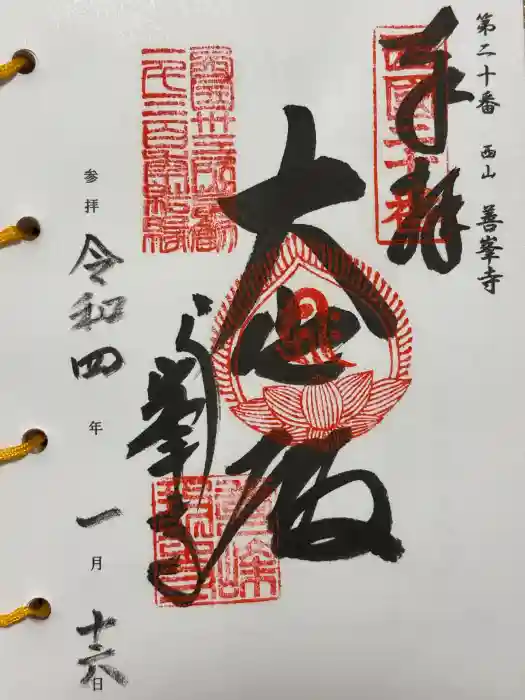 第二十番 西山 善峯寺
奉拝
西國二十番
大悲殿
善峯寺
参拝 令和四年一月十六日